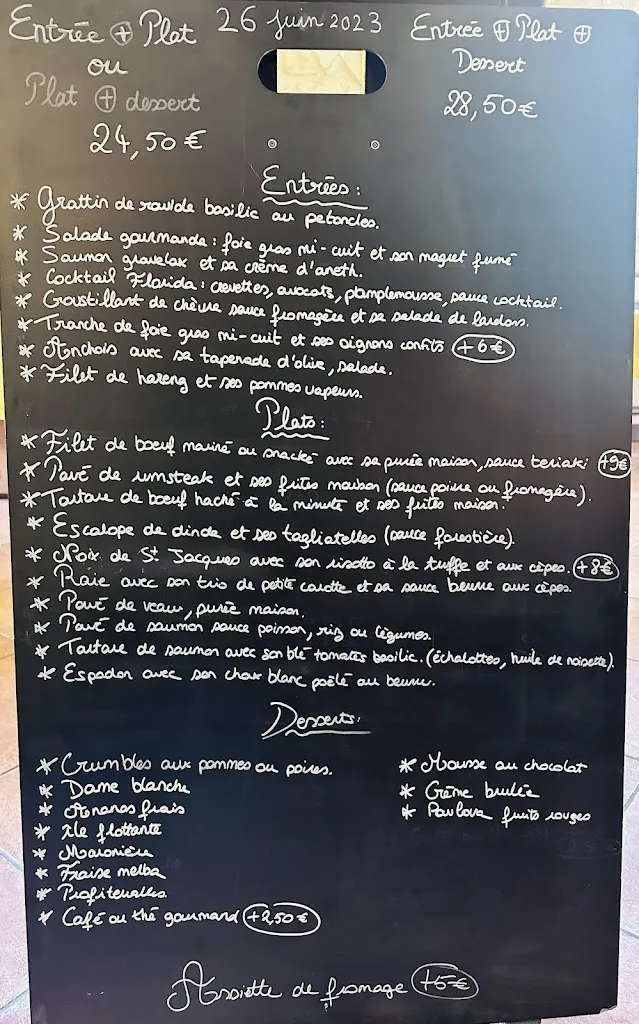 26 Juin 2023
Entrée + Plat
ou
Plat + dessert
24,50€
Entrée + Plat +
Dessert
28,50€
Entrées :
* Grattin de ravide basilic au petoncles.
* Salade gourmande : foie gras mi-cuit et son magret fumé
* Saumon gravelax et sa crème d'aneth.
* Cocktail Florida : crevettes, avocats, pamplemousse, sauce cocktail.
* Croustillant de chèvre sauce fromagère et sa salade de lardons.
* Tranche de foie gras mi-cuit et ses oignons confits +6€
* Anchois avec sa tapenade d'olive, salade.
* Filet de hareng et ses pommes vapeurs.
Plats :
* Filet de boeuf mariné ou snacké avec sa purée maison, sauce teriaki +9€
* Pavé de rumsteak et ses frites maison (sauce poivre ou fromagère).
* Tartare de boeuf haché à la minute et ses frites maison.
* Escalope de dinde et ses tagliatelles (sauce forestière).
* Noix de St Jacques avec son risotto à la truffe et aux cèpes. +8€
* Raie avec son tris de petite carotte et sa sauce beurre aux cèpes.
* Pavé de veau, purée maison.
* Pavé de saumon sauce poisson, riz ou légumes.
* Tartare de saumon avec son blé tomates basilic. (échalottes, huile de noisette).
* Espadon avec son choux blanc poêlé au beurre.
Desserts :
* Crumbles aux pommes ou poires.
* Dame blanche
* Ananas frais
* Ile flottante
* Maronière
* Fraise melba
* Profiterolles
* Café ou thé gourmand +2,50€
* Mousse au chocolat
* Crème brulée
* Pavlova fruits rouges
Assiette de fromage +5€